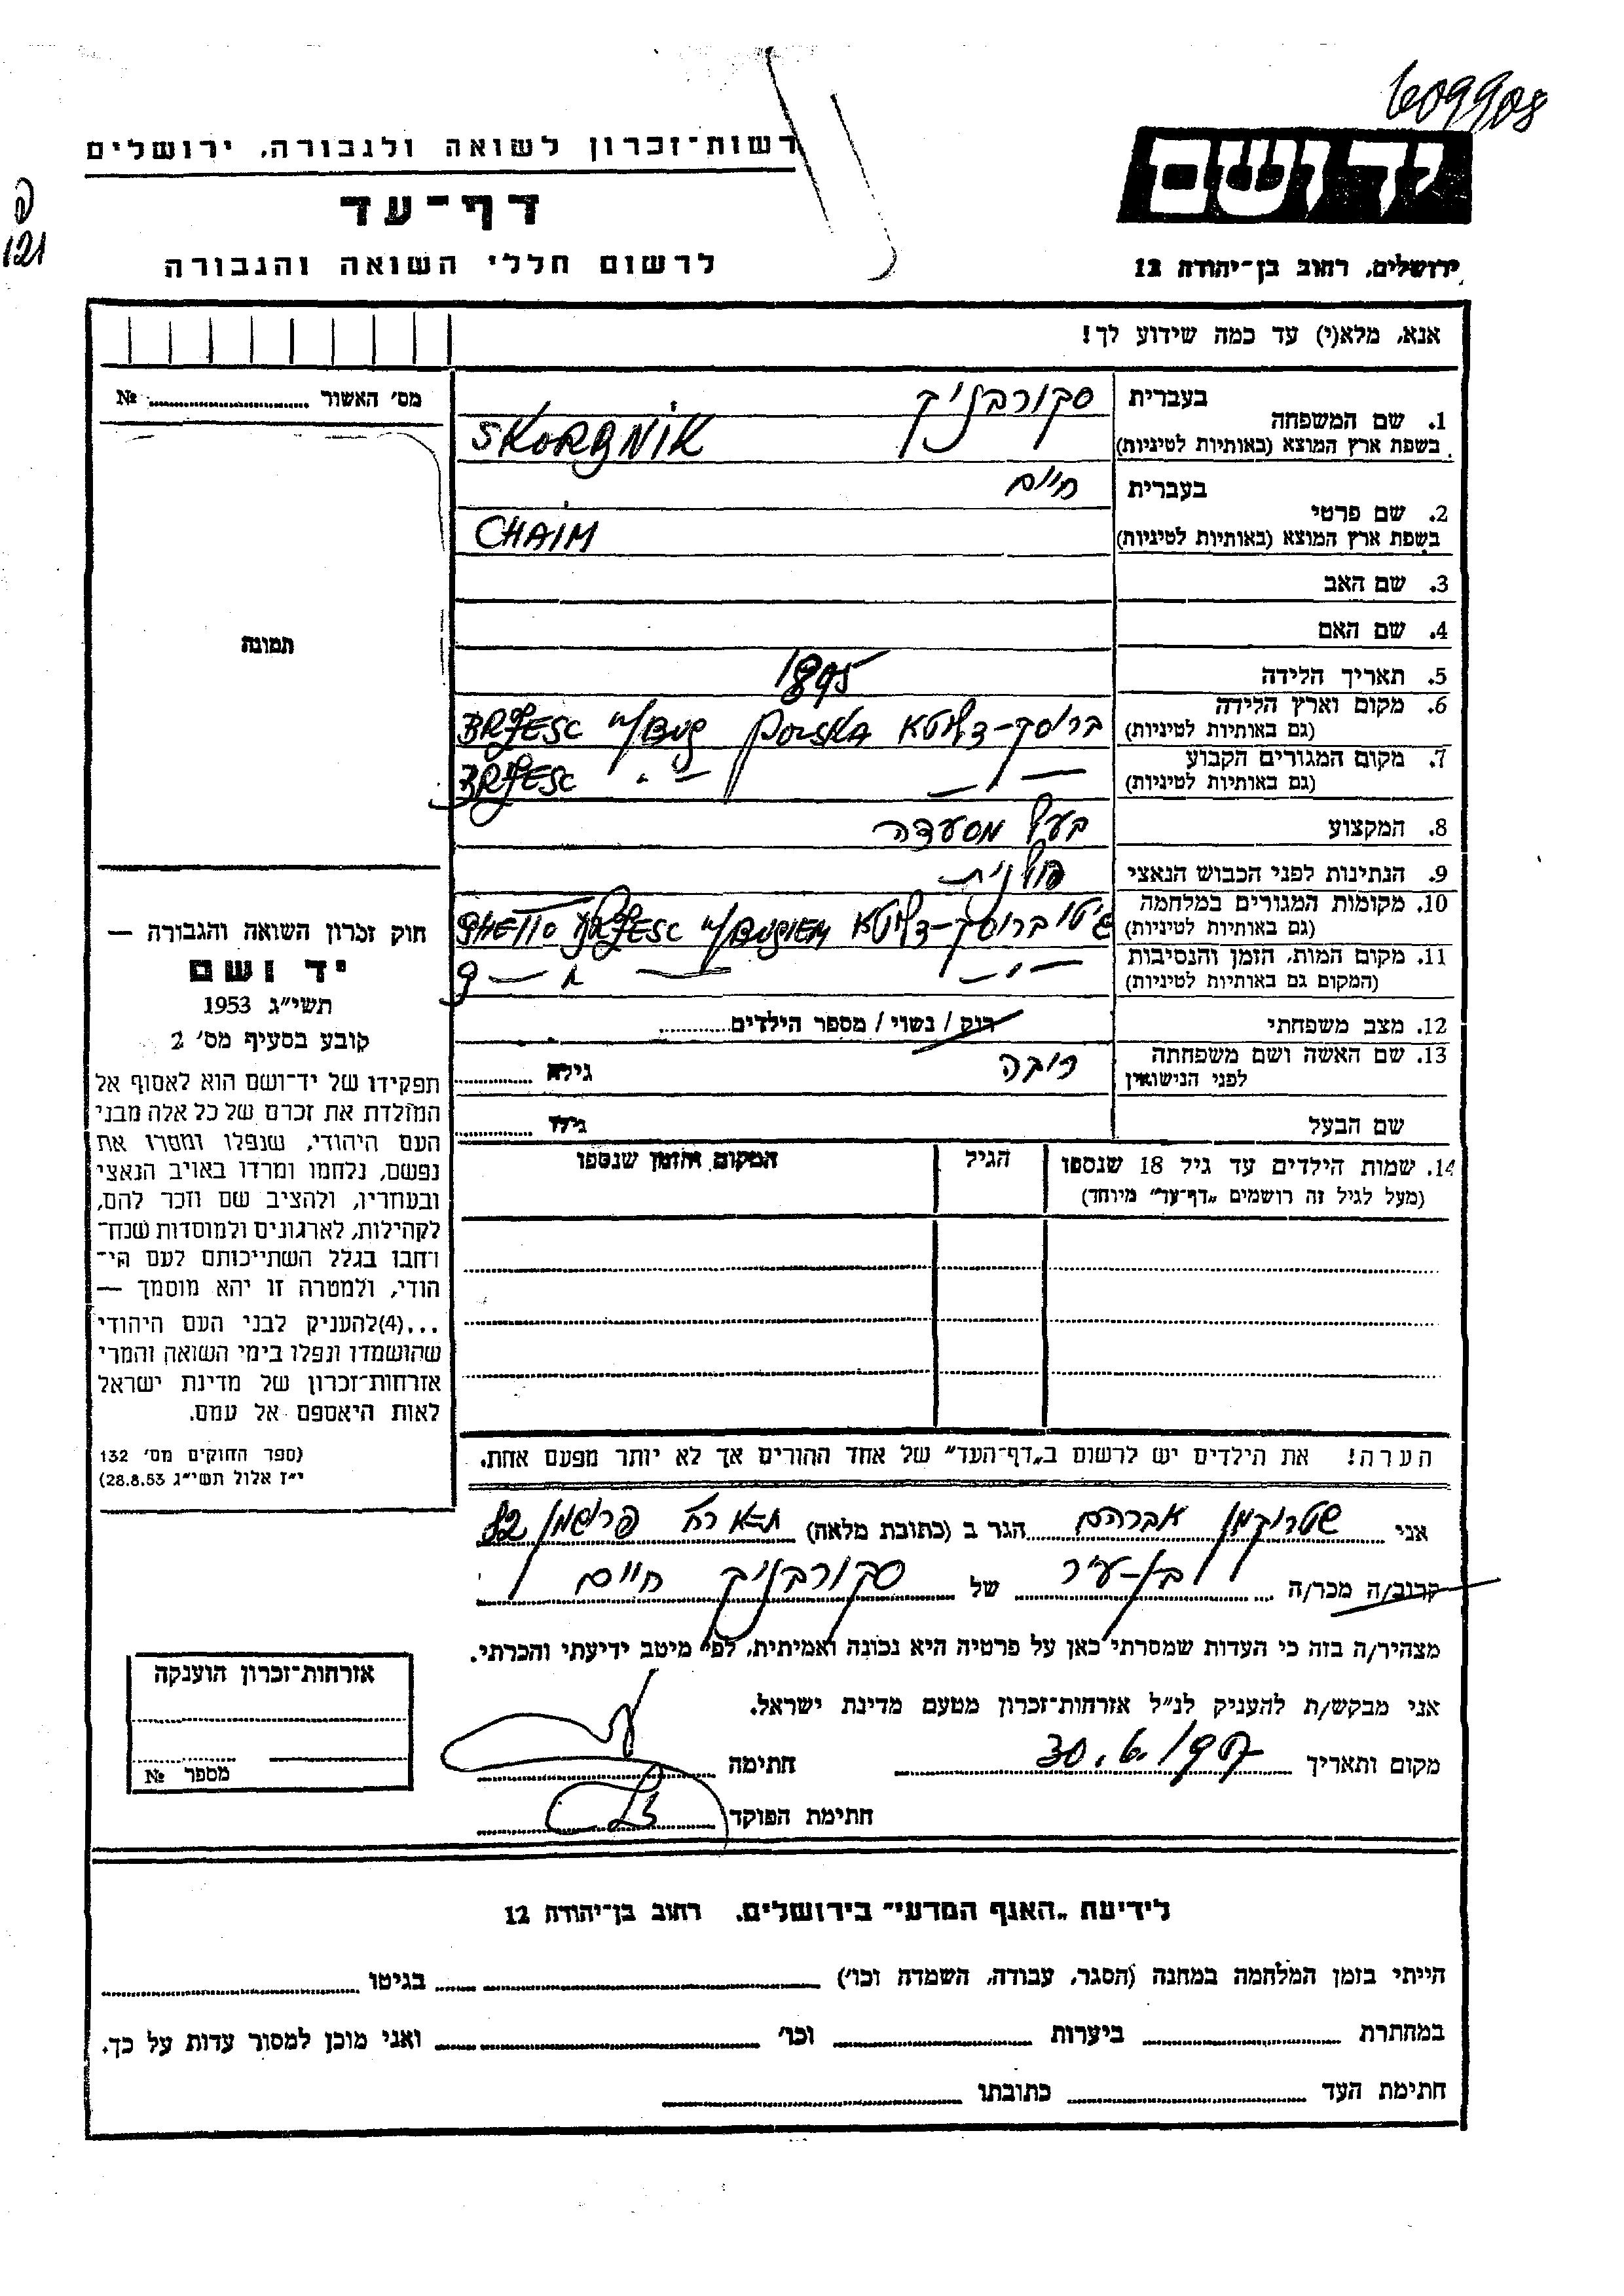 609908
רשות־זכרון לשואה ולגבורה, ירושלים
יד ושם
דף־עד
121
לרשום חללי השואה והגבורה
ירושלים, רחוב בן־יהודה 12
אנא, מלא(י) עד כמה שידוע לך!
מס׳ האשור № ..........
1. שם המשפחה
בעברית סקורבניק
בשפת ארץ המוצא (באותיות לטיניות) SKORBNIK
2. שם פרטי
בעברית חיים
בשפת ארץ המוצא (באותיות לטיניות) CHAIM
3. שם האב
4. שם האם
תמונה
5. תאריך הלידה 1895
6. מקום וארץ הלידה
(גם באותיות לטיניות) בריסק-דליטא POLSKA BRZESC n/BUG
7. מקום המגורים הקבוע
(גם באותיות לטיניות) — " — BRZESC — " —
8. המקצוע בעל מסעדה
9. הנתינות לפני הכבוש הנאצי פולנית
10. מקומות המגורים במלחמה
(גם באותיות לטיניות) גיטו בריסק-דליטא GHETTO BRZESC n/BUGIEM
11. מקום המות, הזמן והנסיבות
(המקום גם באותיות לטיניות) — " —
12. מצב משפחתי רוק / נשוי / מספר הילדים..........
13. שם האשה ושם משפחתה
לפני הנישואין גילה ..........
שם הבעל גילו ..........
14. שמות הילדים עד גיל 18 שנספו
(מעל לגיל זה רושמים „דף־עד״ מיוחד)
הגיל
המקום והזמן שנספו
חוק זכרון השואה והגבורה —
יד ושם
תשי״ג 1953
קובע בסעיף מס׳ 2
תפקידו של יד־ושם הוא לאסוף אל
המולדת את זכרם של כל אלה מבני
העם היהודי, שנפלו ומסרו את
נפשם, נלחמו ומרדו באויב הנאצי
ובעוזריו, ולהציב שם וזכר להם,
לקהילות, לארגונים ולמוסדות שנח־
רחבו בגלל השתייכותם לעם הי־
הודי, ולמטרה זו יהא מוסמך —
...(4)להעניק לבני העם היהודי
שהושמדו ונפלו בימי השואה והמרי
אזרחות־זכרון של מדינת ישראל
לאות היאספם אל עמם.
(ספר החוקים מס׳ 132
י״ז אלול תשי״ג 28.8.53)
הערה! את הילדים יש לרשום ב„דף־העד״ של אחד ההורים אך לא יותר מפעם אחת.
אני שטרוקמן אברהם הגר ב (כתובת מלאה) ת-א רח פרישמן 82
קרוב/ה מכר/ה בן-עיר של סקורבניק חיים
מצהיר/ה בזה כי העדות שמסרתי כאן על פרטיה היא נכונה ואמיתית, לפי מיטב ידיעתי והכרתי.
אני מבקש/ת להעניק לנ״ל אזרחות־זכרון מטעם מדינת ישראל.
מקום ותאריך 30.6.1957 חתימה
חתימת הפוקד
אזרחות־זכרון הוענקה
מספר №
לידיעת „האגף המדעי״ בירושלים, רחוב בן־יהודה 12
הייתי בזמן המלחמה במחנה (הסגר, עבודה, השמדה וכו׳) .......... בגיטו ..........
במחתרת .......... ביערות .......... וכו׳ .......... ואני מוכן למסור עדות על כך.
חתימת העד .......... כתובתו ..........